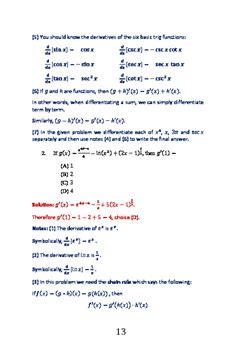 [5] You should know the derivatives of the six basic trig functions:
d/dx [sin x] = cos x d/dx [csc x] = – csc x cot x
d/dx [cos x] = – sin x d/dx [sec x] = sec x tan x
d/dx [tan x] = sec² x d/dx [cot x] = – csc² x
[6] If g and h are functions, then (g + h)′(x) = g′(x) + h′(x).
In other words, when differentiating a sum, we can simply differentiate
term by term.
Similarly, (g – h)′(x) = g′(x) – h′(x).
[7] In the given problem we differentiate each of
and tan x
secparately and then use notes [4] and [6] to write the final answer.
2. If g(x) = – ln(x²) + (2x – 1) , then g′(1) =
(A) 1
(B) 2
(C) 3
(D) 4
Solution: g′(x) =
Therefore g′(1) = 1 – 2 + 5 = 4, choice (D).
Notes: (1) The derivative of eˣ is eˣ.
Symbolically, d/dx [eˣ] = eˣ.
(2) The derivative of ln x is 1/x.
Symbolically, d/dx [ln x] = 1/x.
(3) In this problem we need the chain rule which says the following:
If f(x) = (g ∘ h)(x) = g(h(x)), then
f′(x) = g′(h(x)) · h′(x).
13